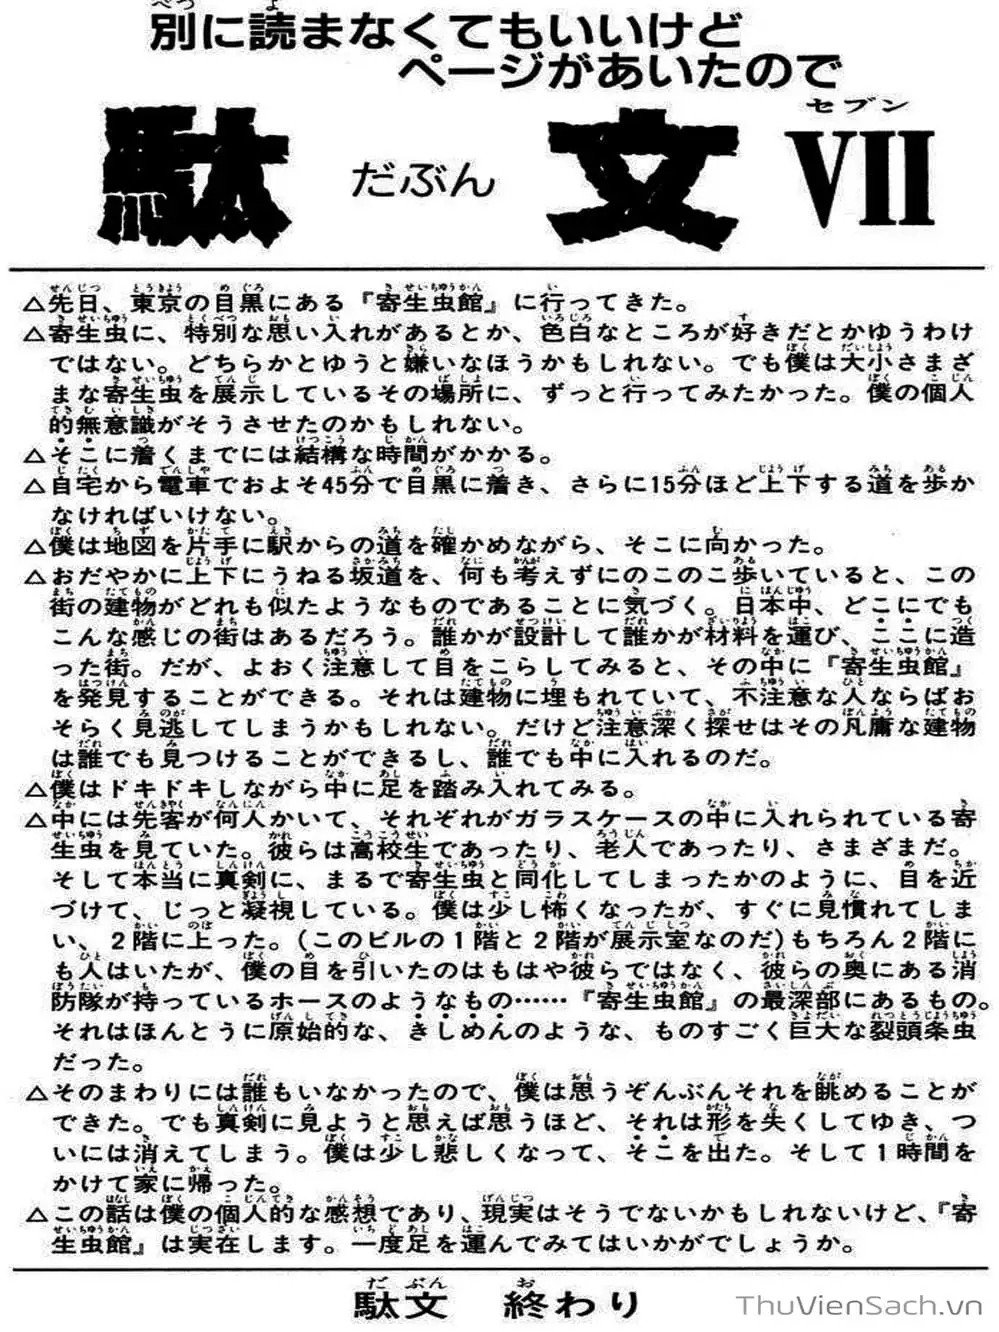 別に読まなくてもいいけど
ページがあいたので
駄 だぶん 文 VII セブン
△先日、東京の目黒にある『寄生虫館』に行ってきた。
△寄生虫に、特別な思い入れがあるとか、色白なところが好きだとかゆうわけ
ではない。どちらかとゆうと嫌いなほうかもしれない。でも僕は大小さまざ
まな寄生虫を展示しているその場所に、ずっと行ってみたかった。僕の個人
的無意識がそうさせたのかもしれない。
△そこに着くまでには結構な時間がかかる。
△自宅から電車でおよそ45分で目黒に着き、さらに15分ほど上下する道を歩か
なければいけない。
△僕は地図を片手に駅からの道を確かめながら、そこに向かった。
△おだやかに上下にうねる坂道を、何も考えずにのこのこ歩いていると、この
街の建物がどれも似たようなものであることに気づく。日本中、どこにでも
こんな感じの街はあるだろう。誰かが設計して誰かが材料を運び、ここに造
った街。だが、よおく注意して目をこらしてみると、その中に『寄生虫館』
を発見することができる。それは建物に埋もれていて、不注意な人ならばお
そらく見逃してしまうかもしれない。だけど注意深く探せばその凡庸な建物
は誰でも見つけることができるし、誰でも中に入れるのだ。
△僕はドキドキしながら中に足を踏み入れてみる。
△中には先客が何人かいて、それぞれがガラスケースの中に入れられている寄
生虫を見ていた。彼らは高校生であったり、老人であったり、さまざまだ。
そして本当に真剣に、まるで寄生虫と同化してしまったかのように、目を近
づけて、じっと凝視している。僕は少し怖くなったが、すぐに見慣れてしま
い、2階に上った。(このビルの1階と2階が展示室なのだ)もちろん2階に
も人はいたが、僕の目を引いたのはもはや彼らではなく、彼らの奥にある消
防隊が持っているホースのようなもの……『寄生虫館』の最深部にあるもの。
それはほんとうに原始的な、きしめんのような、ものすごく巨大な裂頭条虫
だった。
△そのまわりには誰もいなかったので、僕は思うぞんぶんそれを眺めることが
できた。でも真剣に見ようと思えば思うほど、それは形を失くしてゆき、つ
いには消えてしまう。僕は少し悲しくなって、そこを出た。そして1時間を
かけて家に帰った。
△この話は僕の個人的な感想であり、現実はそうでないかもしれないけど、『寄
生虫館』は実在します。一度足を運んでみてはいかがでしょうか。
駄文 終わり
ThuVienSach.vn